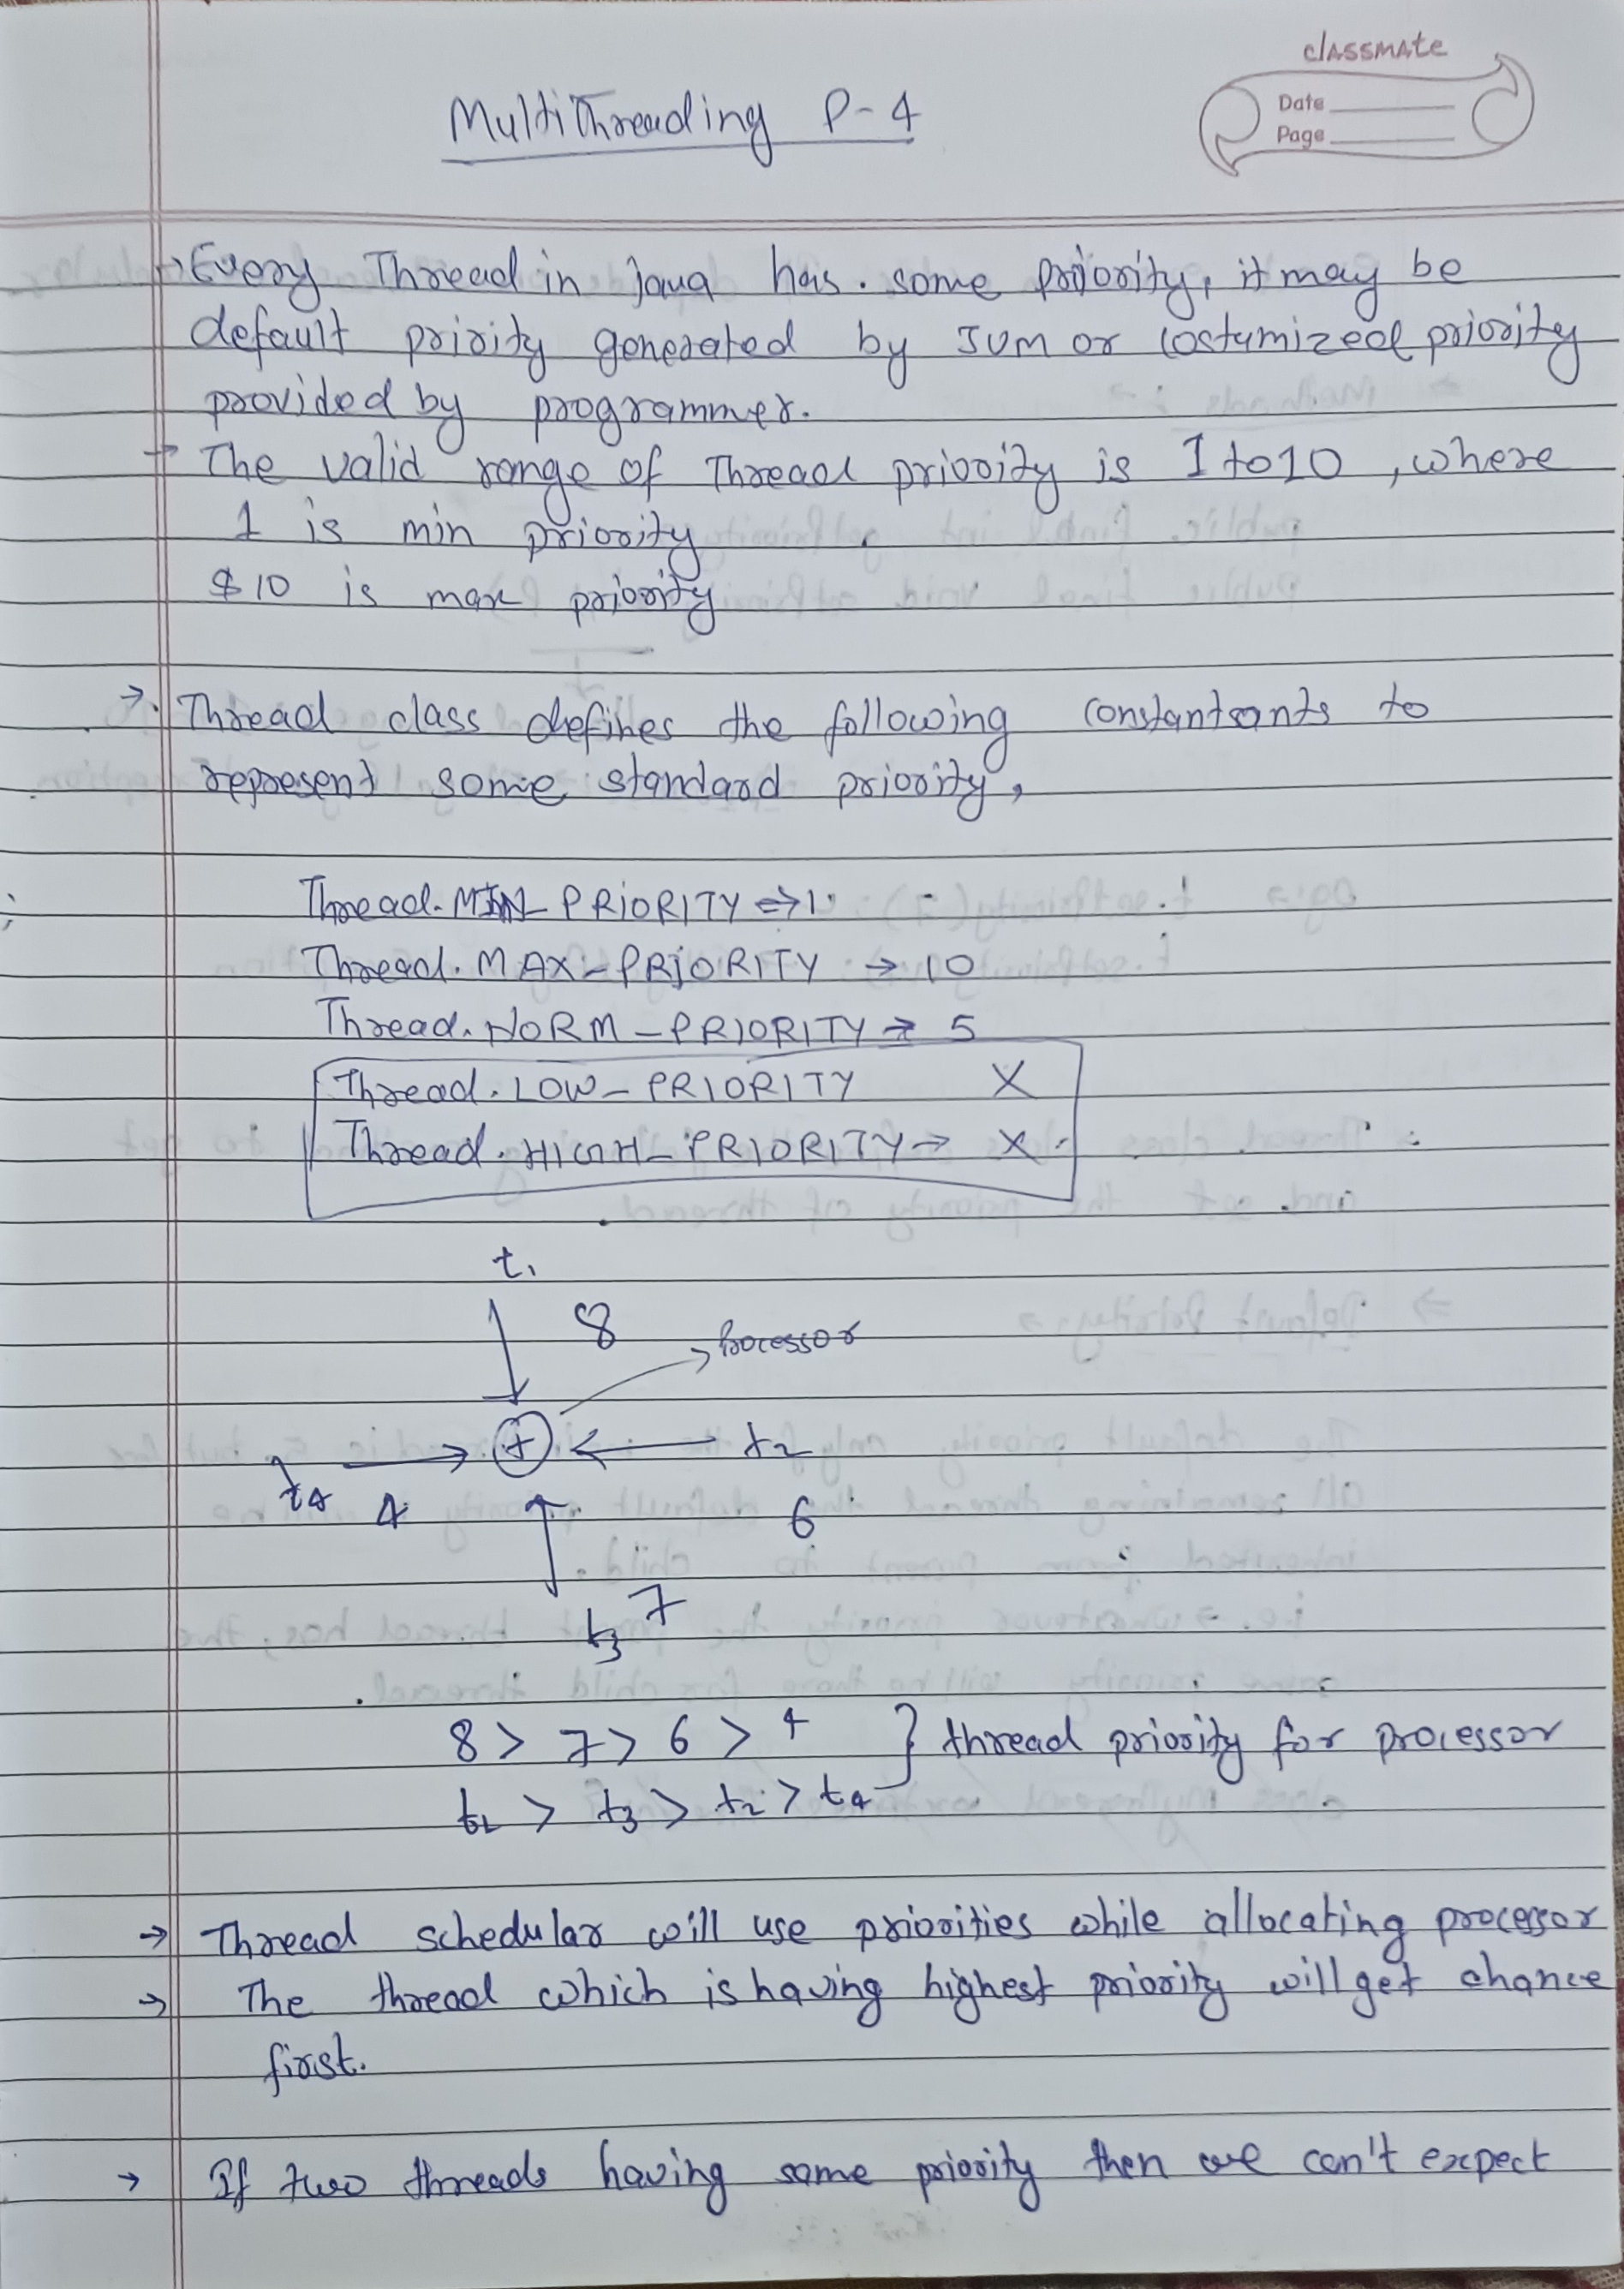 classmate
Date
Page
Multithreading P-4
→ Every Thread in java has some priority, it may be
default pririty generated by JVM or costumized priority
provided by programmer.
→ The valid range of Thread priority is 1 to 10, where
1 is min priority
& 10 is max priority
→ Thread class defines the following constantants to
represent some standard priority,
Thread.MIN_PRIORITY ⇒ 1
Thread.MAX_PRIORITY → 10
Thread.NORM_PRIORITY → 5
Thread.LOW_PRIORITY X
Thread.HIGH_PRIORITY → X
t1
8
Processor
+
t2
t4
4
6
7
t3
8 > 7 > 6 > 4 } thread priority for processor
t1 > t3 > t2 > t4
→ Thread schedular will use priorities while allocating processor
→ The thread which is having highest priority will get chance
first.
→ If two threads having same priority then we can't expect